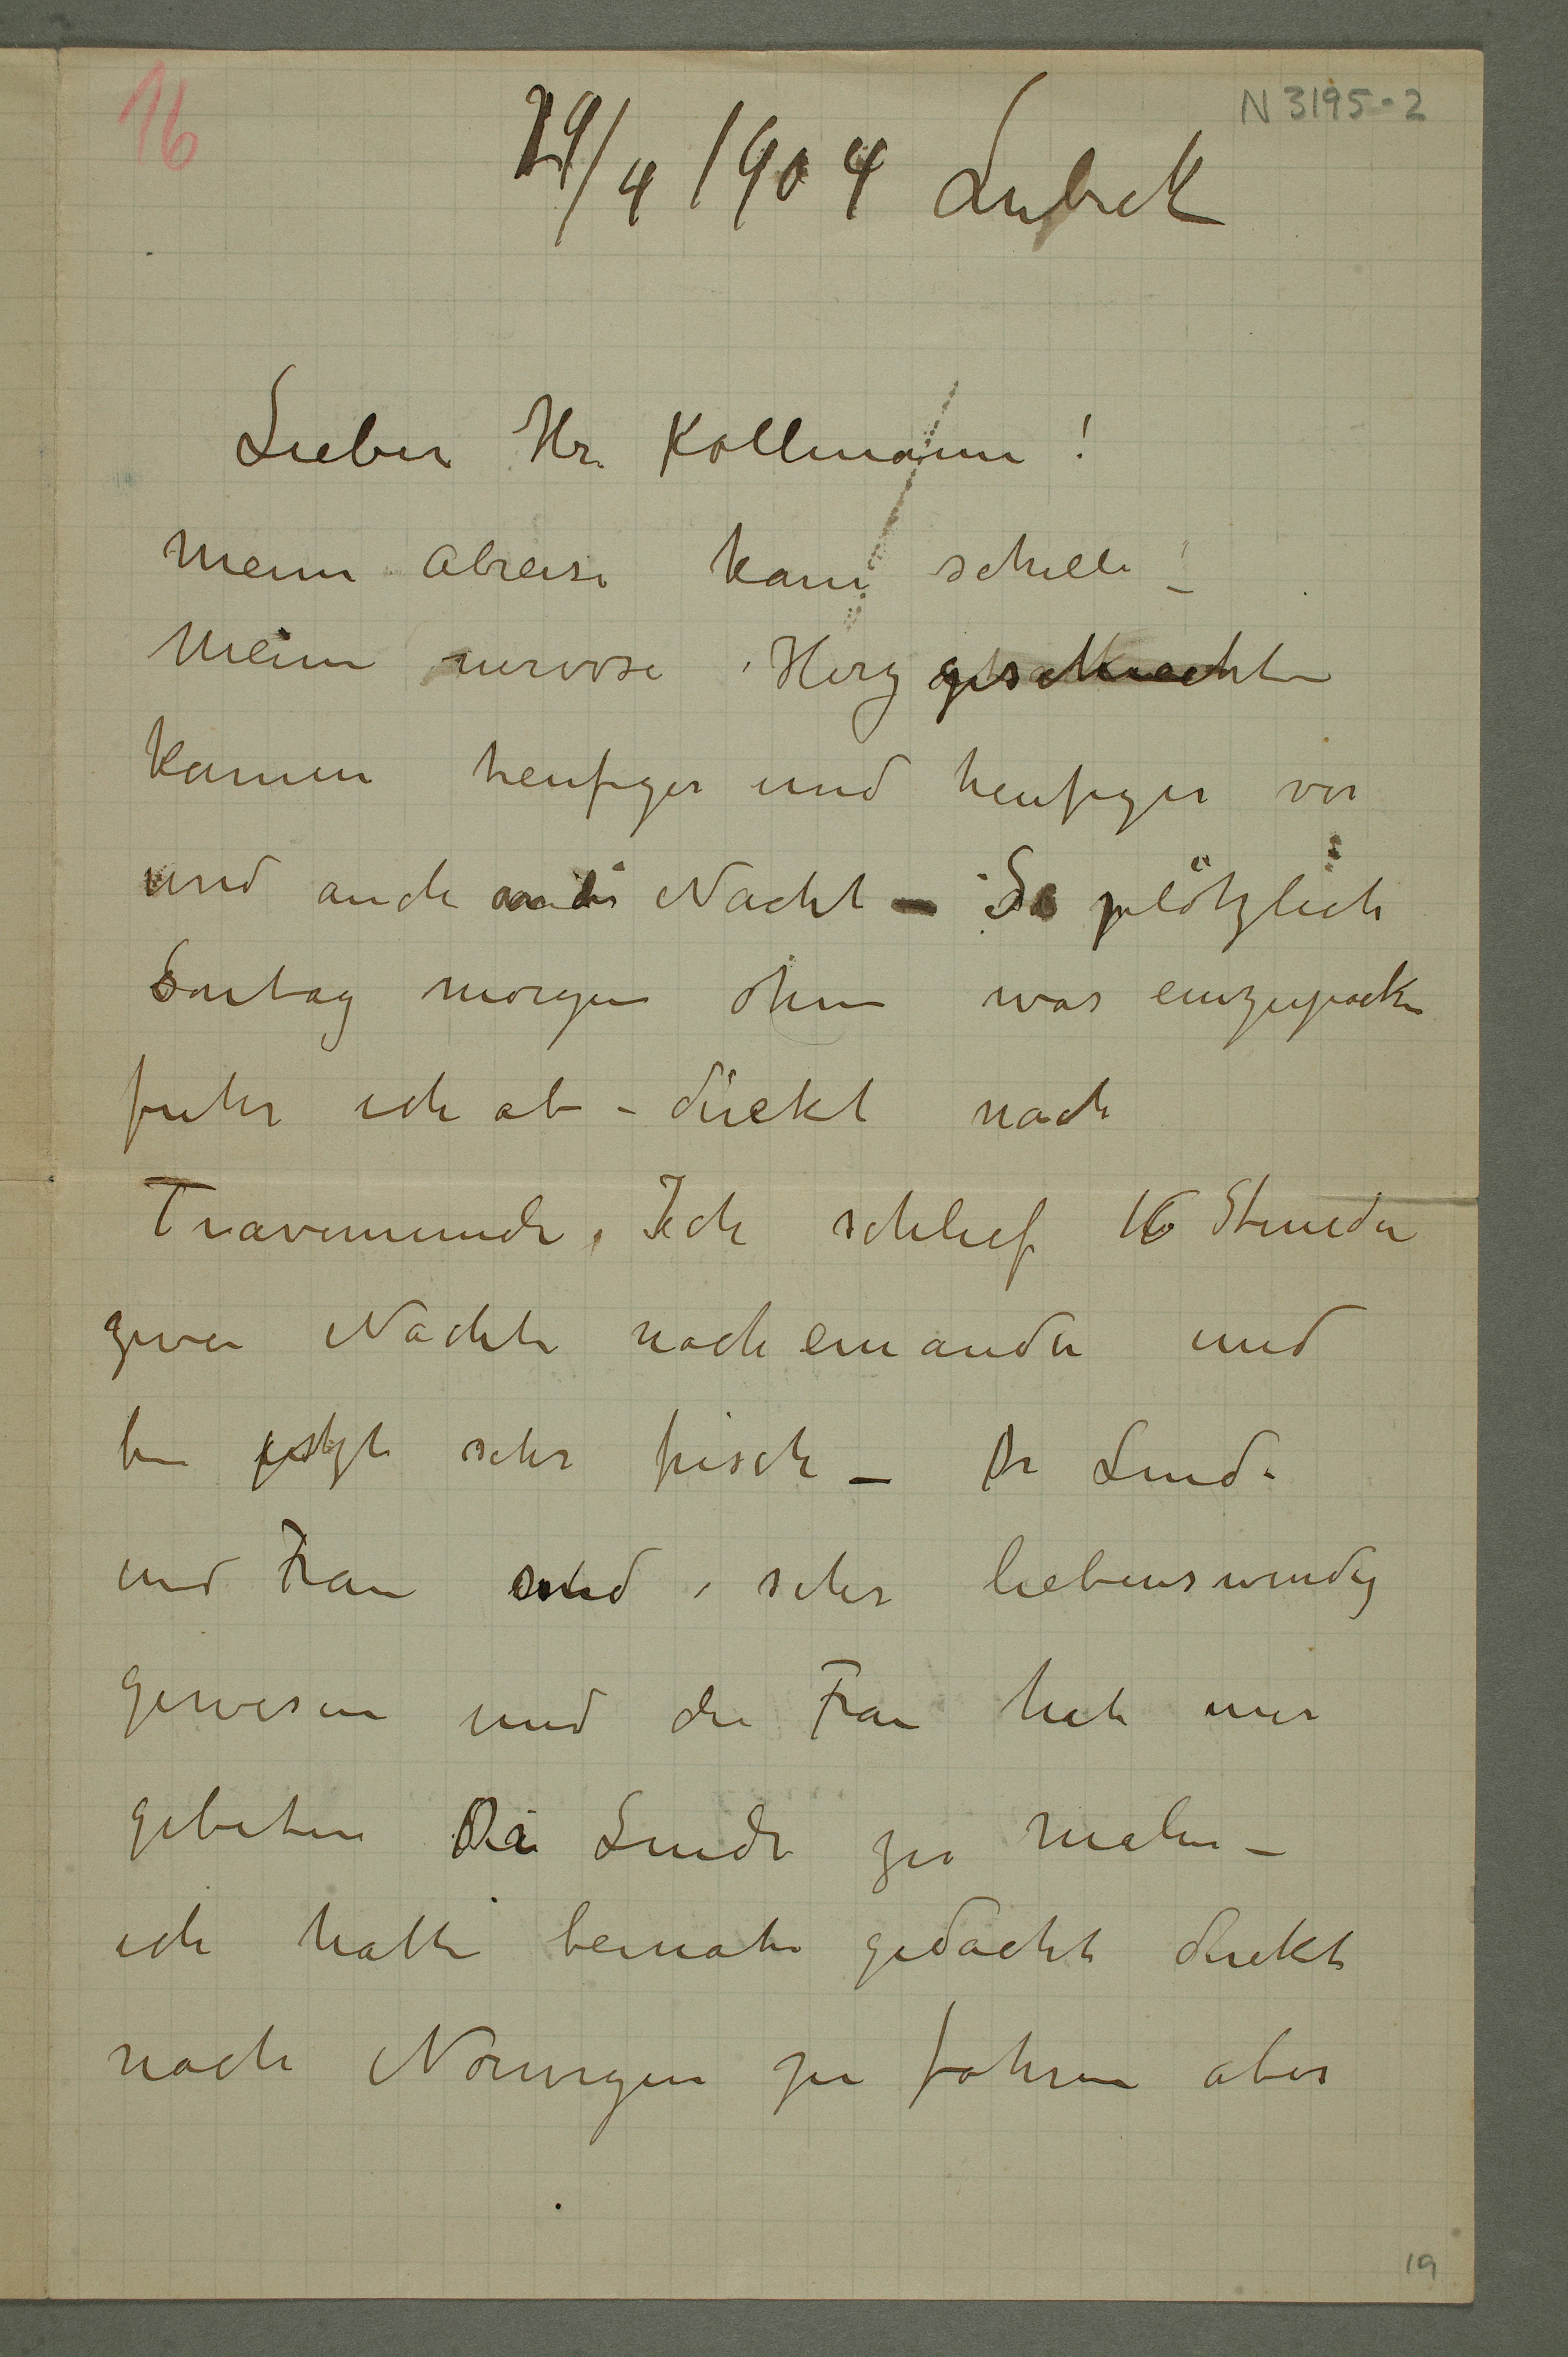 16
N 3195-2
29/4 1904 Lubeck
Lieber Hr. Kollmann!
Meine Abreise kam schnell –
Meine nervose Herz
kamen heufiger und heufiger vor
und auch Nacht – So plötzlich
Sontag morgen ohne was einzupacken
fuhr ich ab – direkt nach
Travemunde, Ich schlief 16 Stunden
zwei Nächte nach einander und
bin jetzt sehr frisch – Dr Linde
und Frau sind sehr liebenswurdig
gewesen und die Frau hat mir
gebeten Dr Linde zu malen –
ich hatte beinahe gedacht direkt
nach Norwegen zu fahren aber
19